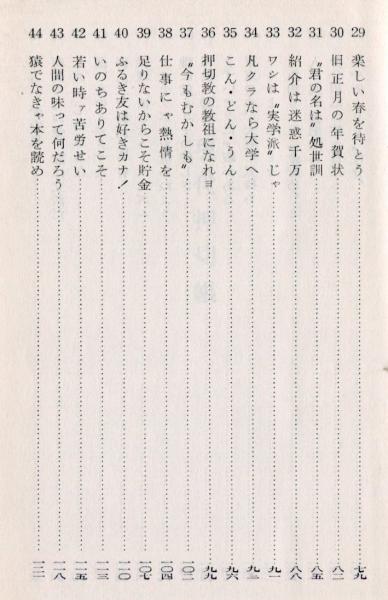 29 楽しい春を待とう……七九
30 旧正月の年賀状……八二
31 〝君の名は〟処世訓……八五
32 紹介は迷惑千万……八八
33 ワシは〝実学派〟じゃ……九一
34 凡クラなら大学へ……九三
35 こん・どん・うん……九六
36 押切教の教祖になれョ……九九
37 〝今もむかしも〟……一〇二
38 仕事にゃ熱情を……一〇四
39 足りないからこそ貯金……一〇七
40 ふるき友は好きカナ！……一一〇
41 いのちありてこそ……一一三
42 若い時ァ苦労せい……一一五
43 人間の味って何だろう……一一八
44 猿でなきゃ本を読め……一二一